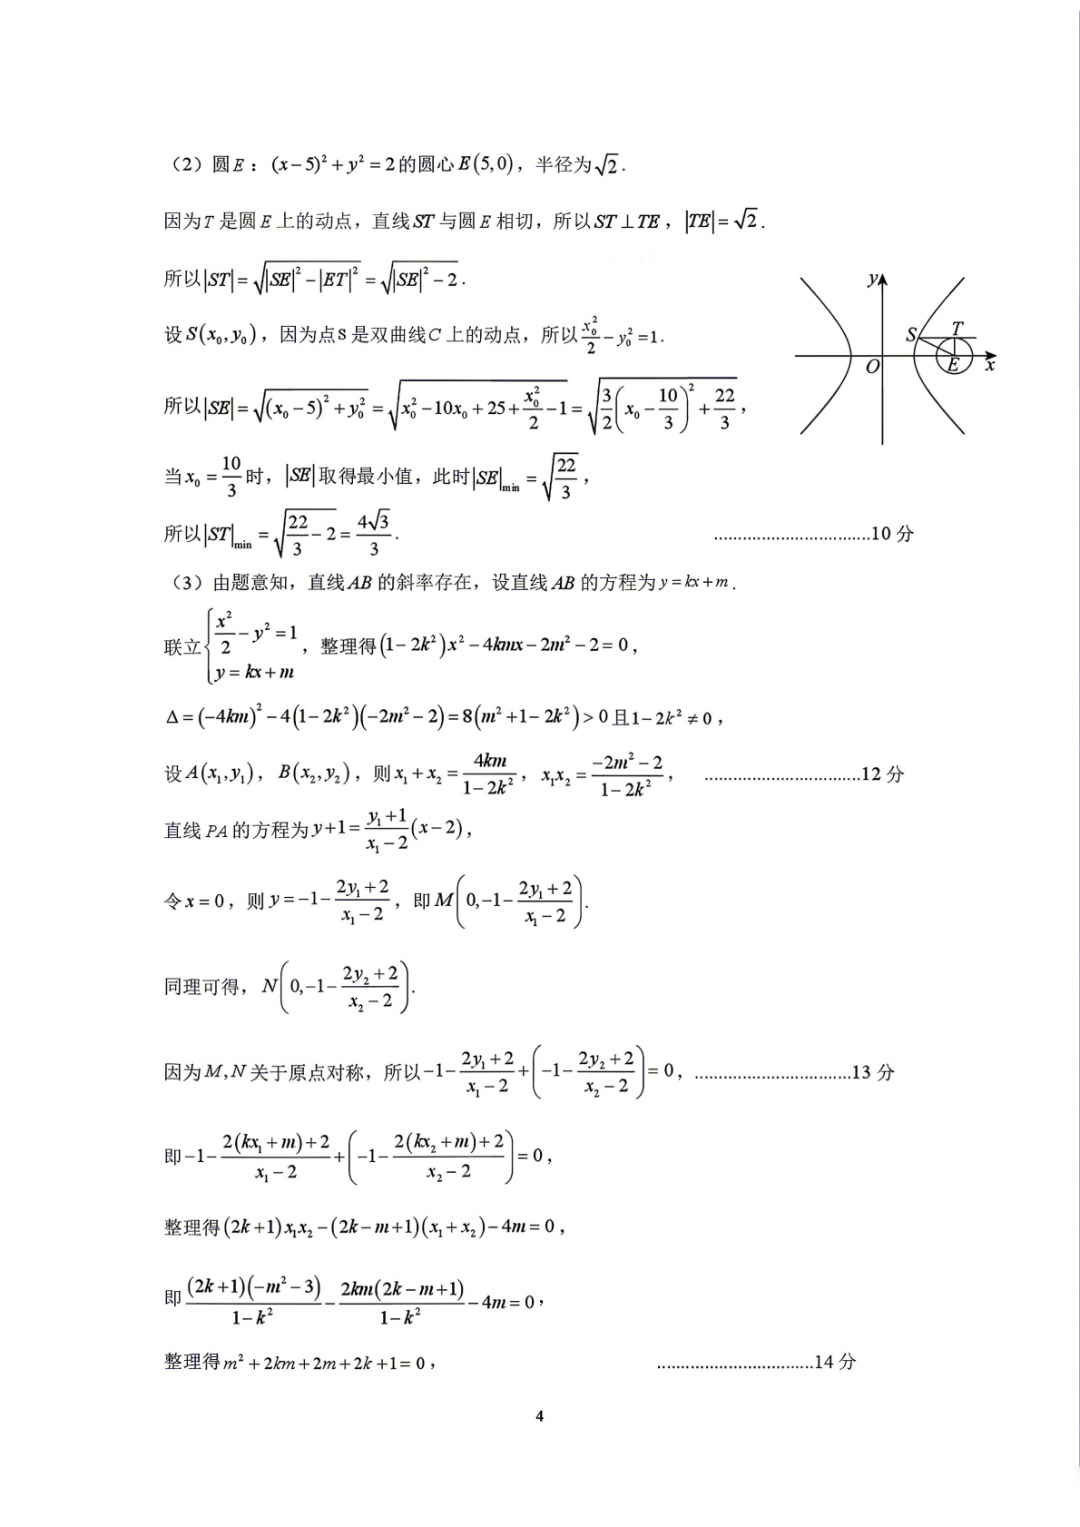 （2）圆E：(x−5)²+y²=2的圆心E(5,0)，半径为√2．
因为T是圆E上的动点，直线ST与圆E相切，所以ST⊥TE，|TE|=√2．
所以|ST|=√(|SE|²−|ET|²)=√(|SE|²−2)．
设S(x₀,y₀)，因为点S是双曲线C上的动点，所以x₀²/2−y₀²=1．
所以|SE|=√((x₀−5)²+y₀²)=√(x₀²−10x₀+25+x₀²/2−1)=√(3/2(x₀−10/3)²+22/3)，
当x₀=10/3时，|SE|取得最小值，此时|SE|min=√(22/3)，
所以|ST|min=√(22/3−2)=4√3/3．................................10分
（3）由题意知，直线AB的斜率存在，设直线AB的方程为y=kx+m．
联立{x²/2−y²=1，y=kx+m，整理得(1−2k²)x²−4kmx−2m²−2=0，
Δ=(−4km)²−4(1−2k²)(−2m²−2)=8(m²+1−2k²)>0且1−2k²≠0，
设A(x₁,y₁)，B(x₂,y₂)，则x₁+x₂=4km/(1−2k²)，x₁x₂=(−2m²−2)/(1−2k²)，................................12分
直线PA的方程为y+1=(y₁+1)/(x₁−2)(x−2)，
令x=0，则y=−1−(2y₁+2)/(x₁−2)，即M(0,−1−(2y₁+2)/(x₁−2))．
同理可得，N(0,−1−(2y₂+2)/(x₂−2))．
因为M,N关于原点对称，所以−1−(2y₁+2)/(x₁−2)+(−1−(2y₂+2)/(x₂−2))=0，................................13分
即−1−(2(kx₁+m)+2)/(x₁−2)+(−1−(2(kx₂+m)+2)/(x₂−2))=0，
整理得(2k+1)x₁x₂−(2k−m+1)(x₁+x₂)−4m=0，
即(2k+1)(−m²−3)/(1−k²)−2km(2k−m+1)/(1−k²)−4m=0，
整理得m²+2km+2m+2k+1=0，................................14分
y
S
T
O
E
x
4